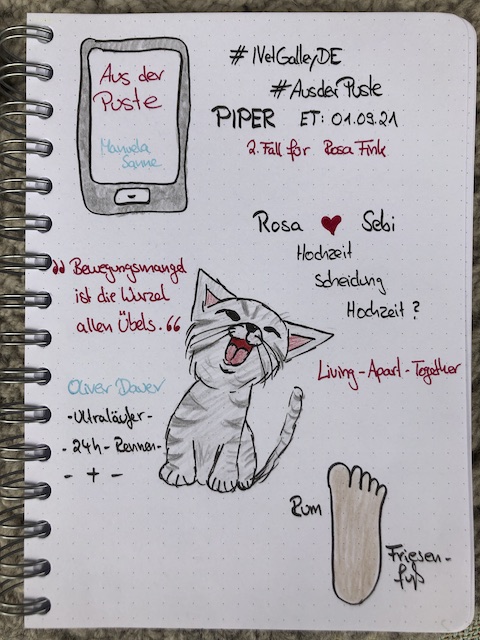 Aus der
Puste
Manuela
Sanne
#NetGalleyDE
#AusderPuste
PIPER ET: 01.09.21
2. Fall für Rosa Fink
Rosa ♥ Sebi
Hochzeit
Scheidung
Hochzeit?
„Bewegungsmangel
ist die Wurzel
allen Übels.“
Living-Apart-Together
Oliver Dauer
-Ultraläufer-
-24h-Rennen-
- + -
Rum
Friesen-
fuß